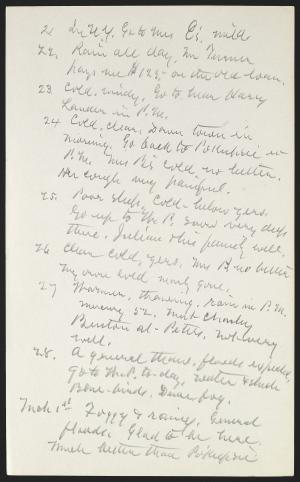 21 In N.Y. Go to Mrs C's, mild
22, Rain all day, Mr Turner
pays me $125,- on the old loan.
23 Cold, windy, Go to hear Harry
Lauder in P.M.
24 Cold, clear, Down town in
morning. Go back to Po'keepsie in
P.M. Mrs B's cold no better.
Her cough very painful.
25. Poor sleep, cold - below zero.
Go up to W.P. snow very deep
there. Julian & his family well.
26 Clear cold, zero. Mrs B. no better
My own cold nearly gone.
27 Warmer, thawing, rain in P.M.
mercury 52, meet Charley
Benton at - Not very
well.
28. A general thaw, floods expected,
Go to W.P. to-day, water &
Blue-birds. Dense fog.
Mch 1st Foggy & rainy, General
floods. Glad to be here.
Much better than Po'keepsie